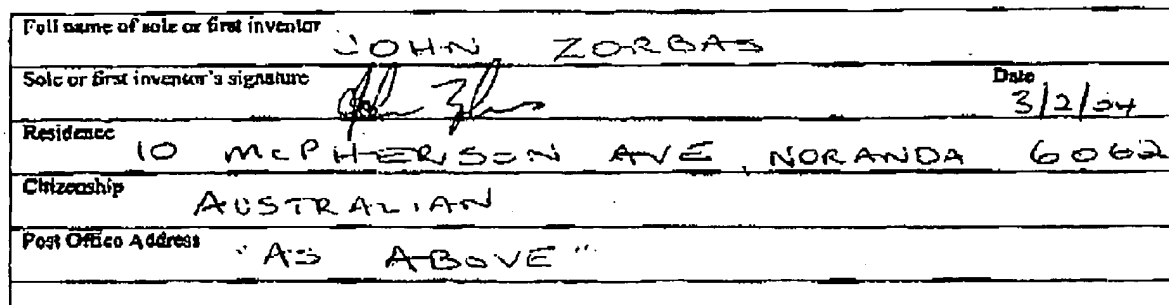 Full name of sole or first inventor JOHN ZORBAS
Sole or first inventor's signature Date 3/2/04
Residence 10 McPHERSON AVE, NORANDA 6062
Citizenship AUSTRALIAN
Post Office Address "AS ABOVE"